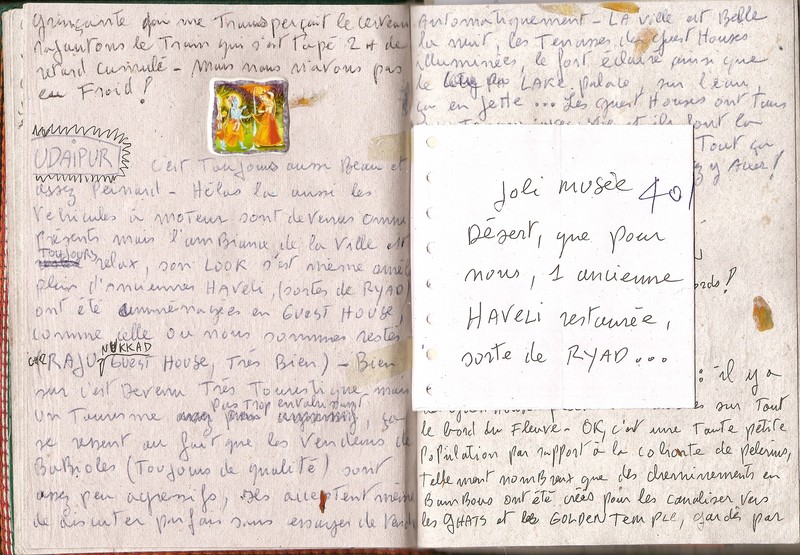 grinçante qui me transperçait le cerveau
rajoutons le train qui s'est tapé 2 H de
retard cumulé - Mais nous n'avons pas
eu Froid !
UDAIPUR
C'est Toujours aussi Beau et
assez Peinard - Hélas la aussi les
Véhicules à moteur sont devenus omni
Présents mais l'amBiance de la Ville est
TOUJOURS
relax, son LOOK s'est même amél
plein d'anciennes HAVELI, (sortes de RYAD)
ont été aménagées en GUEST HOUSE,
comme celle où nous sommes restés
NUKKAD
RAJU GUEST House, Très Bien) - Bien
sur c'est Devenu Très Touristique mais
Pas Trop envahissant
un Tourisme ça
se ressent au fait que les Vendeurs de
BaBioles (Toujours de qualité) sont
assez peu agressifs, acceptent même
de discuter parfois sans essayer de Vend
Automatiquement - LA Ville est Belle
la nuit, les Terrasses des Guest Houses
illuminées, le fort éclairé ainsi que
le LAKE Palace sur l'eau,
ça en jette ... Les Guest Houses ont Tous
et ils font la
Tout ça
y Aller !
Joli musée 40
Désert, que pour
nous, 1 ancienne
HAVELI restaurée,
sorte de RYAD...
bords !
: il y a
sur Tout
le bord du Fleuve - OK, c'est une Toute petite
Population par rapport à la cohorte de pelerins,
tellement nomBreux que des cheminements en
BamBous ont été créés pour les canaliser vers
les GHATS et le GOLDEN TEMPLE, gardés par